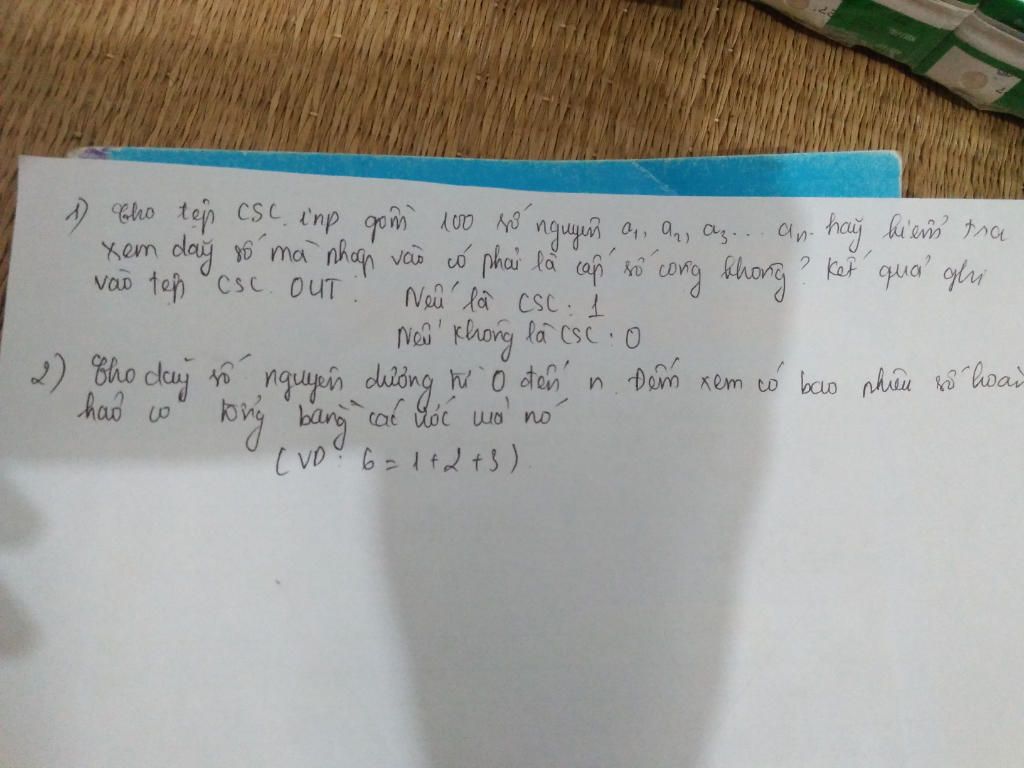 1) Cho tệp CSC.inp gồm 100 số nguyên a₁, a₂, a₃... aₙ. hãy kiểm tra
xem dãy số mà nhập vào có phải là cấp số cộng không? Kết quả ghi
vào tệp CSC.OUT: Nếu là CSC: 1
Nếu không là CSC: 0
2) Cho dãy số nguyên dương từ 0 đến n. Đếm xem có bao nhiêu số hoàn
hảo có tổng bằng các ước của nó
(VD: 6 = 1+2+3).